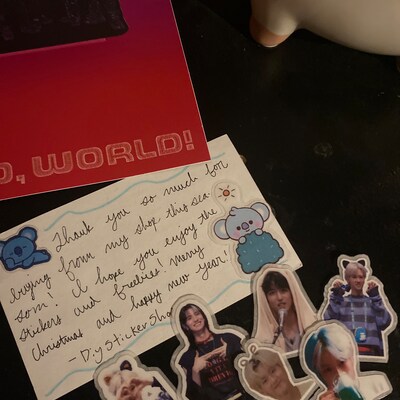 O, WORLD!
Thank you so much for
buying from my shop this sea
som! I hope you enjoy the
stickers and freebies. merry
christmas and happy new year!
- Diy Sticker Sho